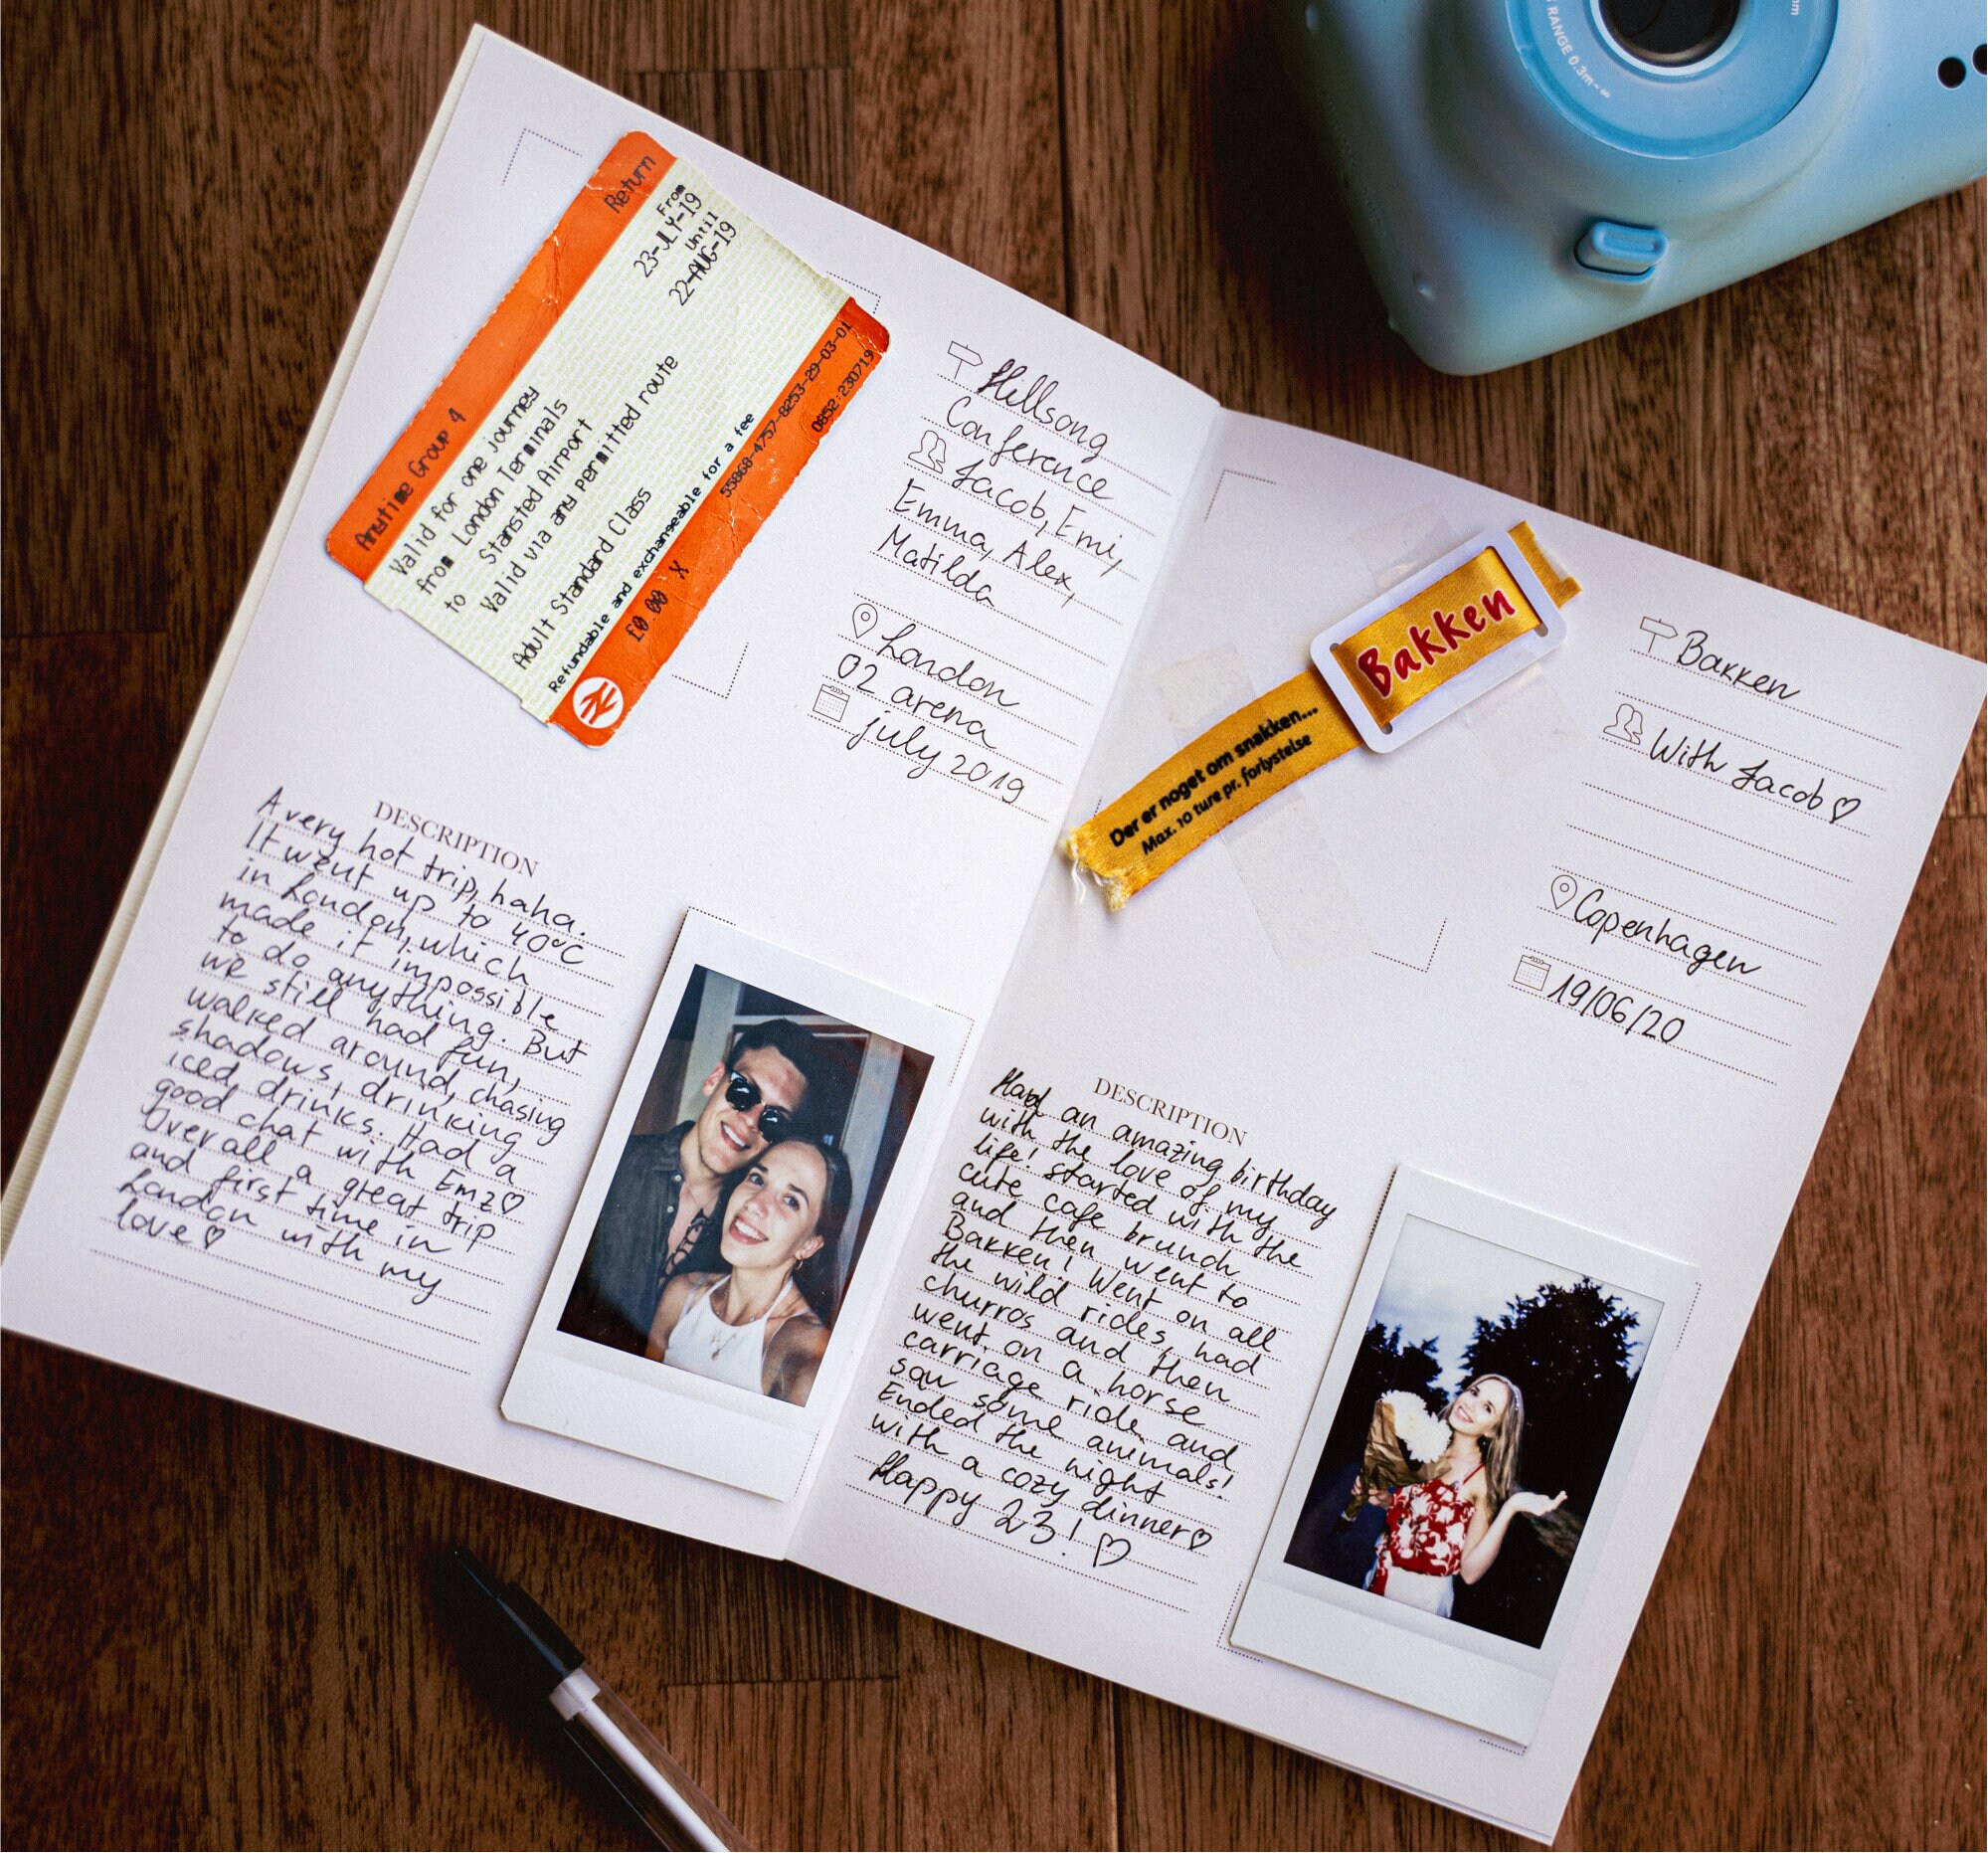 Return
From
23-JLY-19
Until
22-AUG-19
Anytime Group 4
Valid for one journey
from London Terminals
to Stansted Airport
Valid via any permitted route
Adult Standard Class
Refundable and exchangeable for a fee
£0.00 X
55868-4757-8253-29-03-01
0852:230719
Hillsong
Conference
Jacob, Emi,
Emma, Alex,
Matilda
London
02 arena
july 2019
DESCRIPTION
A very hot trip, haha.
It went up to 40°C
in London, which
made it impossible
to do anything. But
we still had fun,
walked around, chasing
shadows, drinking
iced drinks. Had a
good chat with Emz♡
Overall a great trip
and first time in
London with my
love♡
Bakken
Der er noget om snakken...
Max. 10 ture pr. forlystelse
Bakken
With Jacob♡
Copenhagen
19/06/20
DESCRIPTION
Had an amazing birthday
with the love of my
life! Started with the
cute cafe brunch
and then went to
Bakken! Went on all
the wild rides, had
churros and then
went on a horse
carriage ride and
saw some animals!
Ended the night
with a cozy dinner♡
Happy 23! ♡
RANGE 0.3m~∞